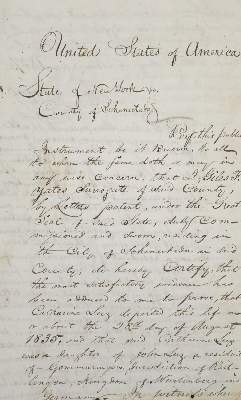 United States of America
State of New York
County of Schenectady
By this public
Instrument be it known to all
to whom the same doth or may in
any wise concern that I, Giles F.
Yates Surrogate of said County,
by letters patent, under the Great
Seal of said State, duly Com-
missioned and sworn, residing in
the City of Schenectady in said
County, do hereby Certify, that
the most satisfactory evidence has
been adduced to me to prove, that
Catharine Lutz departed this life on
or about the 28th day of August
1835. and that said Catharine Lutz
was a daughter of John Lutz a resident
of Gommaringen, Jurisdiction of
Kingdom of Wurtemberg in
Germany. In